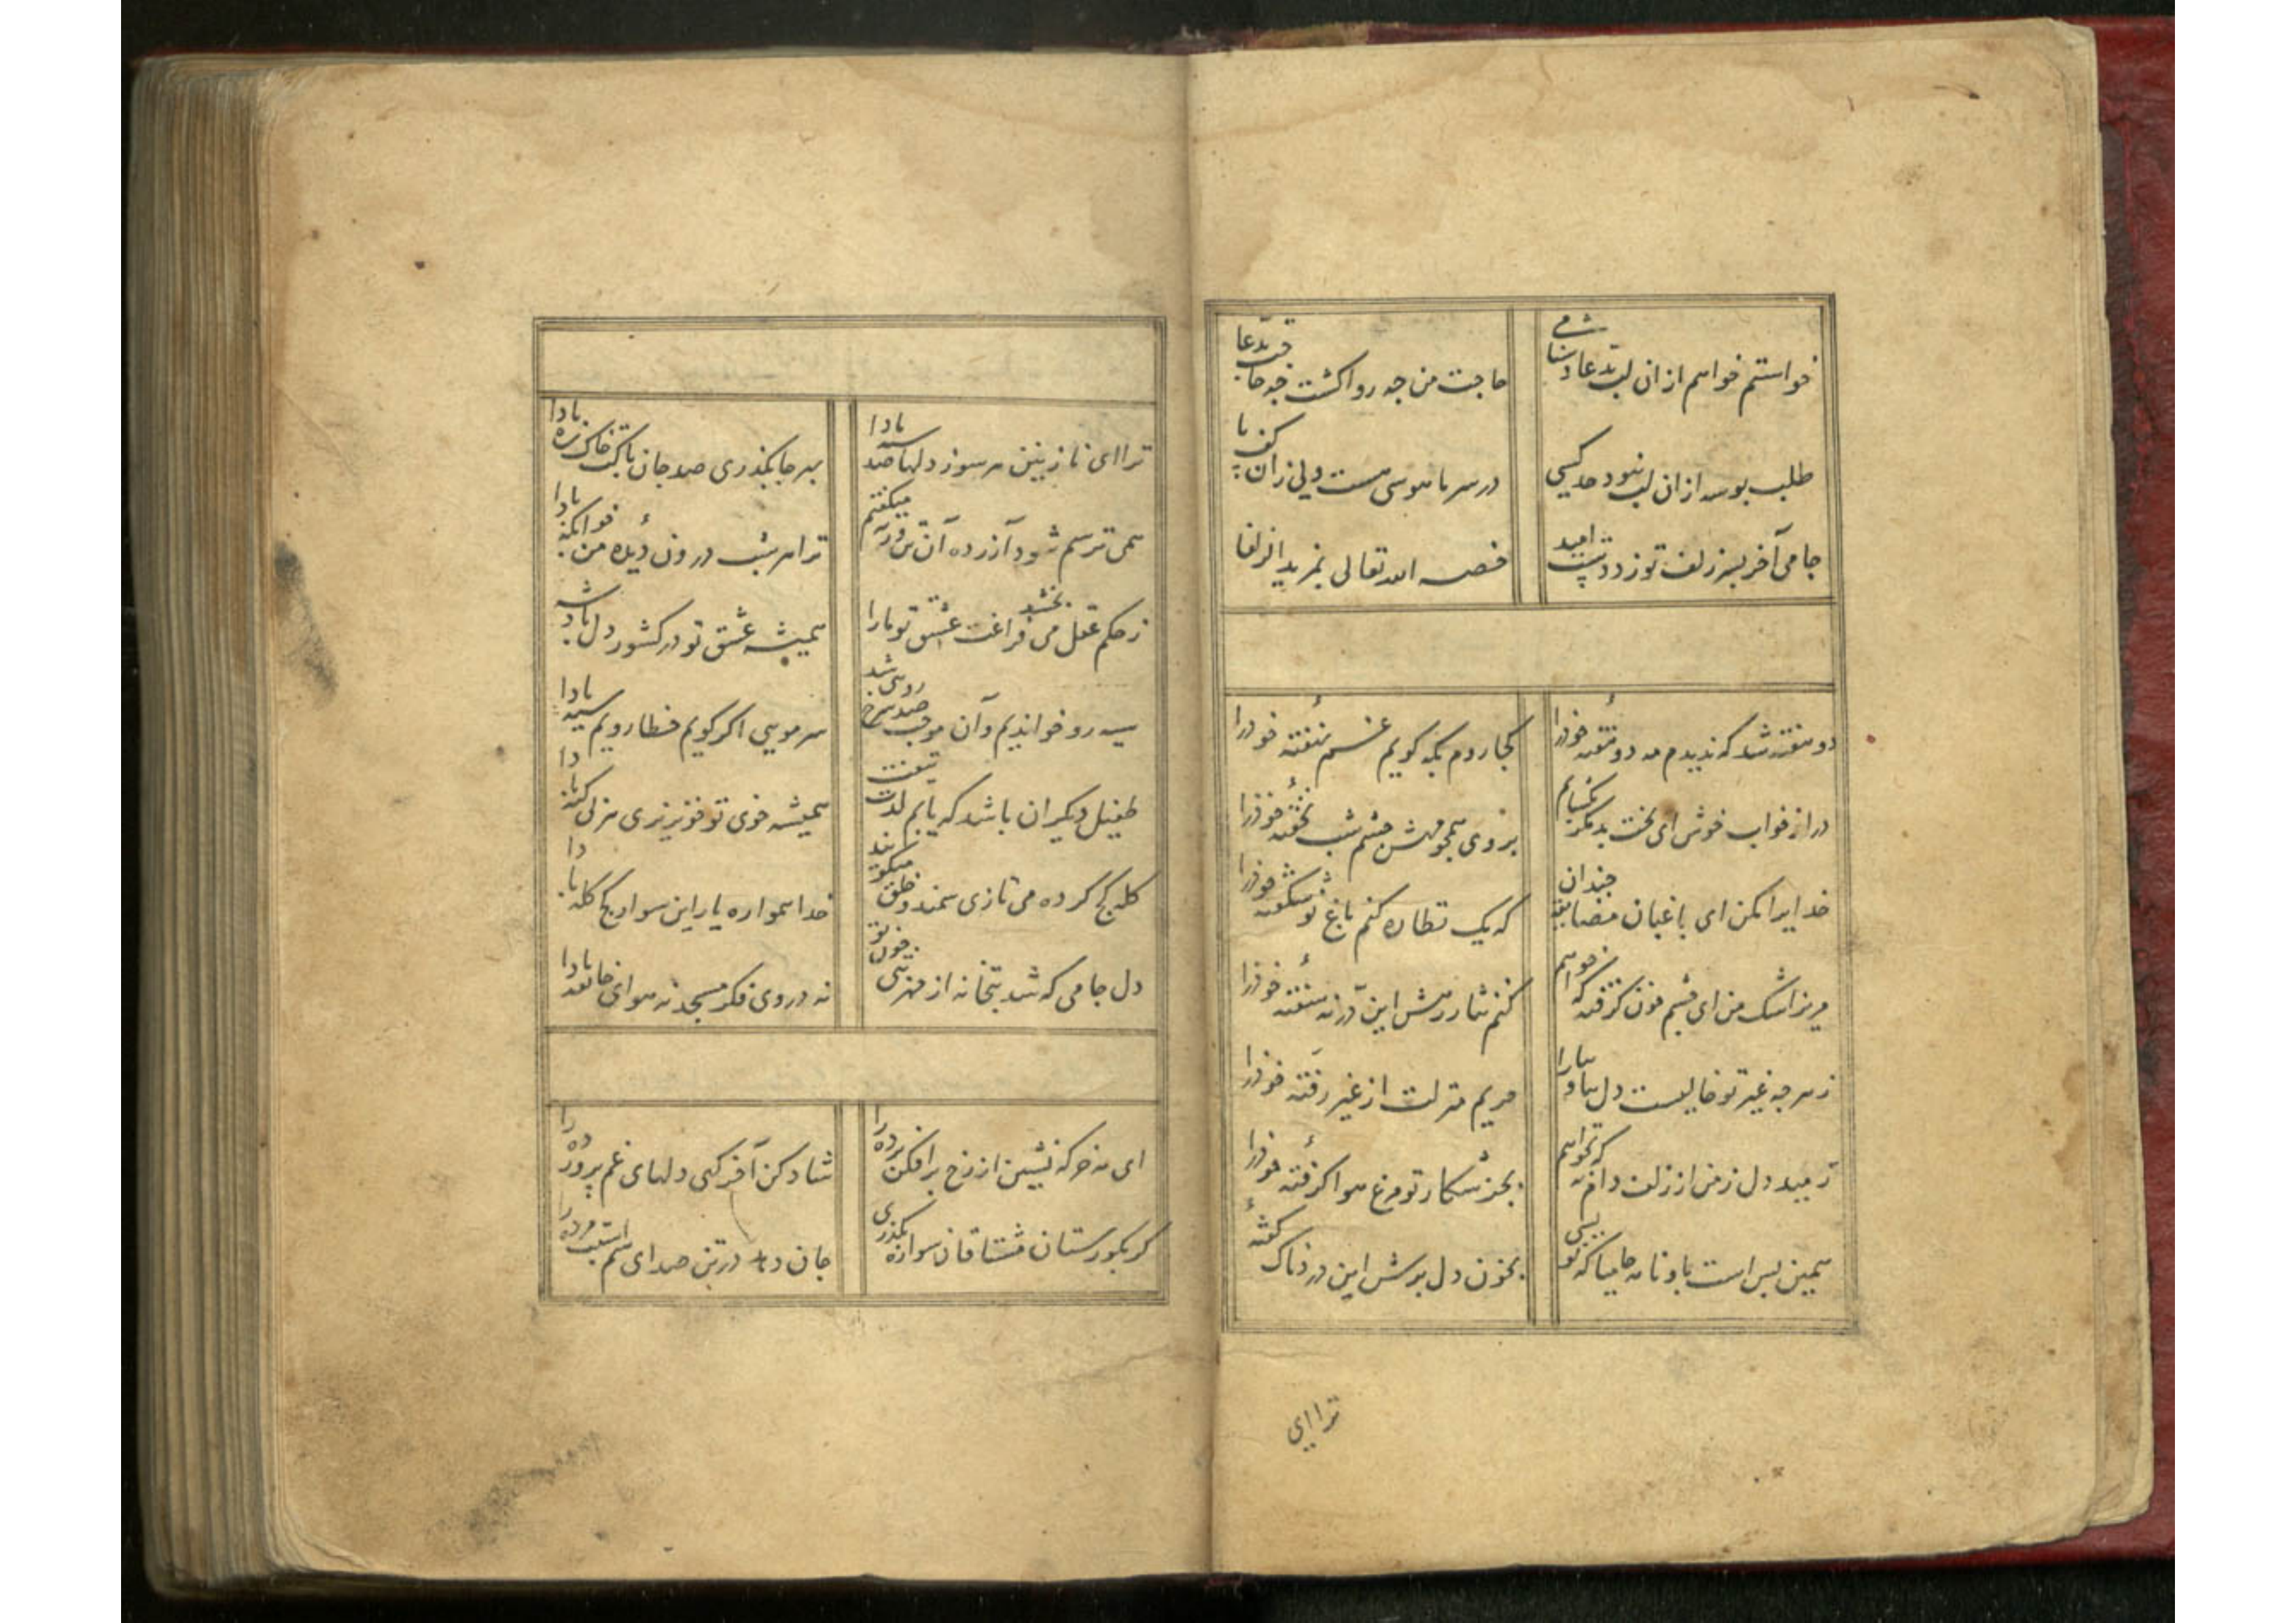 خواستم خواهم ازان لب بدعا دشنامی
حاجت من چه رواکشت چه حاجت بدعا
طلب بوسه ازان لب نبود حد کسی
در سر ما هوسی هست ولی زان کف پا
جامی آخر بسر زلف تو زد دست امید
خصه الله تعالی بمزید الزلفا
دو هفته شد که ندیدم مه دو هفتهٔ خودرا
کجا روم بکه کویم غم نهفتهٔ خودرا
درا ز خواب خوش ای بخت بد مکر بکشایم
بروی همچو مهش چشم شب نخفتهٔ خودرا
خدایرا مکن ای باغبان مضایقه چندان
که یک نظاره کنم باغ نو شکفتهٔ خودرا
مریز اشک من ای چشم خون کرفته که خواهم
کنم نثار رهش این در نسفتهٔ خودرا
ز هر چه غیر تو خالیست دل بیا و بیارا
حریم منزلت از غیر رفتهٔ خودرا
رمید دل ز من از زلف دام نه که نخواهم
بجز شکار تو مرغ هوا کرفتهٔ خودرا
همین بس است باو نامه جامیا که نویسی
بخون دل بدرش این دردناک کفتهٔ
ترا ای
ترا ای نازنین هر سوز دلها صد سپه بادا
بهر جا بکذری صد جان پاکت خاک ره بادا
همی ترسم شود آزرده آن تن ورنه میکفتم
ترا هر شب درون دیدهٔ من خوابکه بادا
ز حکم عقل می بخشد فراغت عشق تو مارا
همیشه عشق تو در کشور دل پادشه
سیه رو خواندیم و آن موجب صد سرخ رویی شد
سر مویی اکر کویم خطا رویم سیه بادا
طفیل دیکران باشد که یابم لذت تیغت
همیشه خوی تو خونریزی هر بی کنه بادا
کله کج کرده می تازی سمند و خلق میکویند
خدا همواره یار این سوار کج کله بادا
دل جامی که شد بتخانه از مهر بتی چون تو
نه در وی فکر مسجد نه هوای خانقه بادا
ای مه خرکه نشین از رخ برافکن پرده را
شاد کن آخر کهی دلهای غم پرورده را
کر بکورستان مشتاقان سواره بکذری
جان دهد در تن صدای سم اسبت مرده را